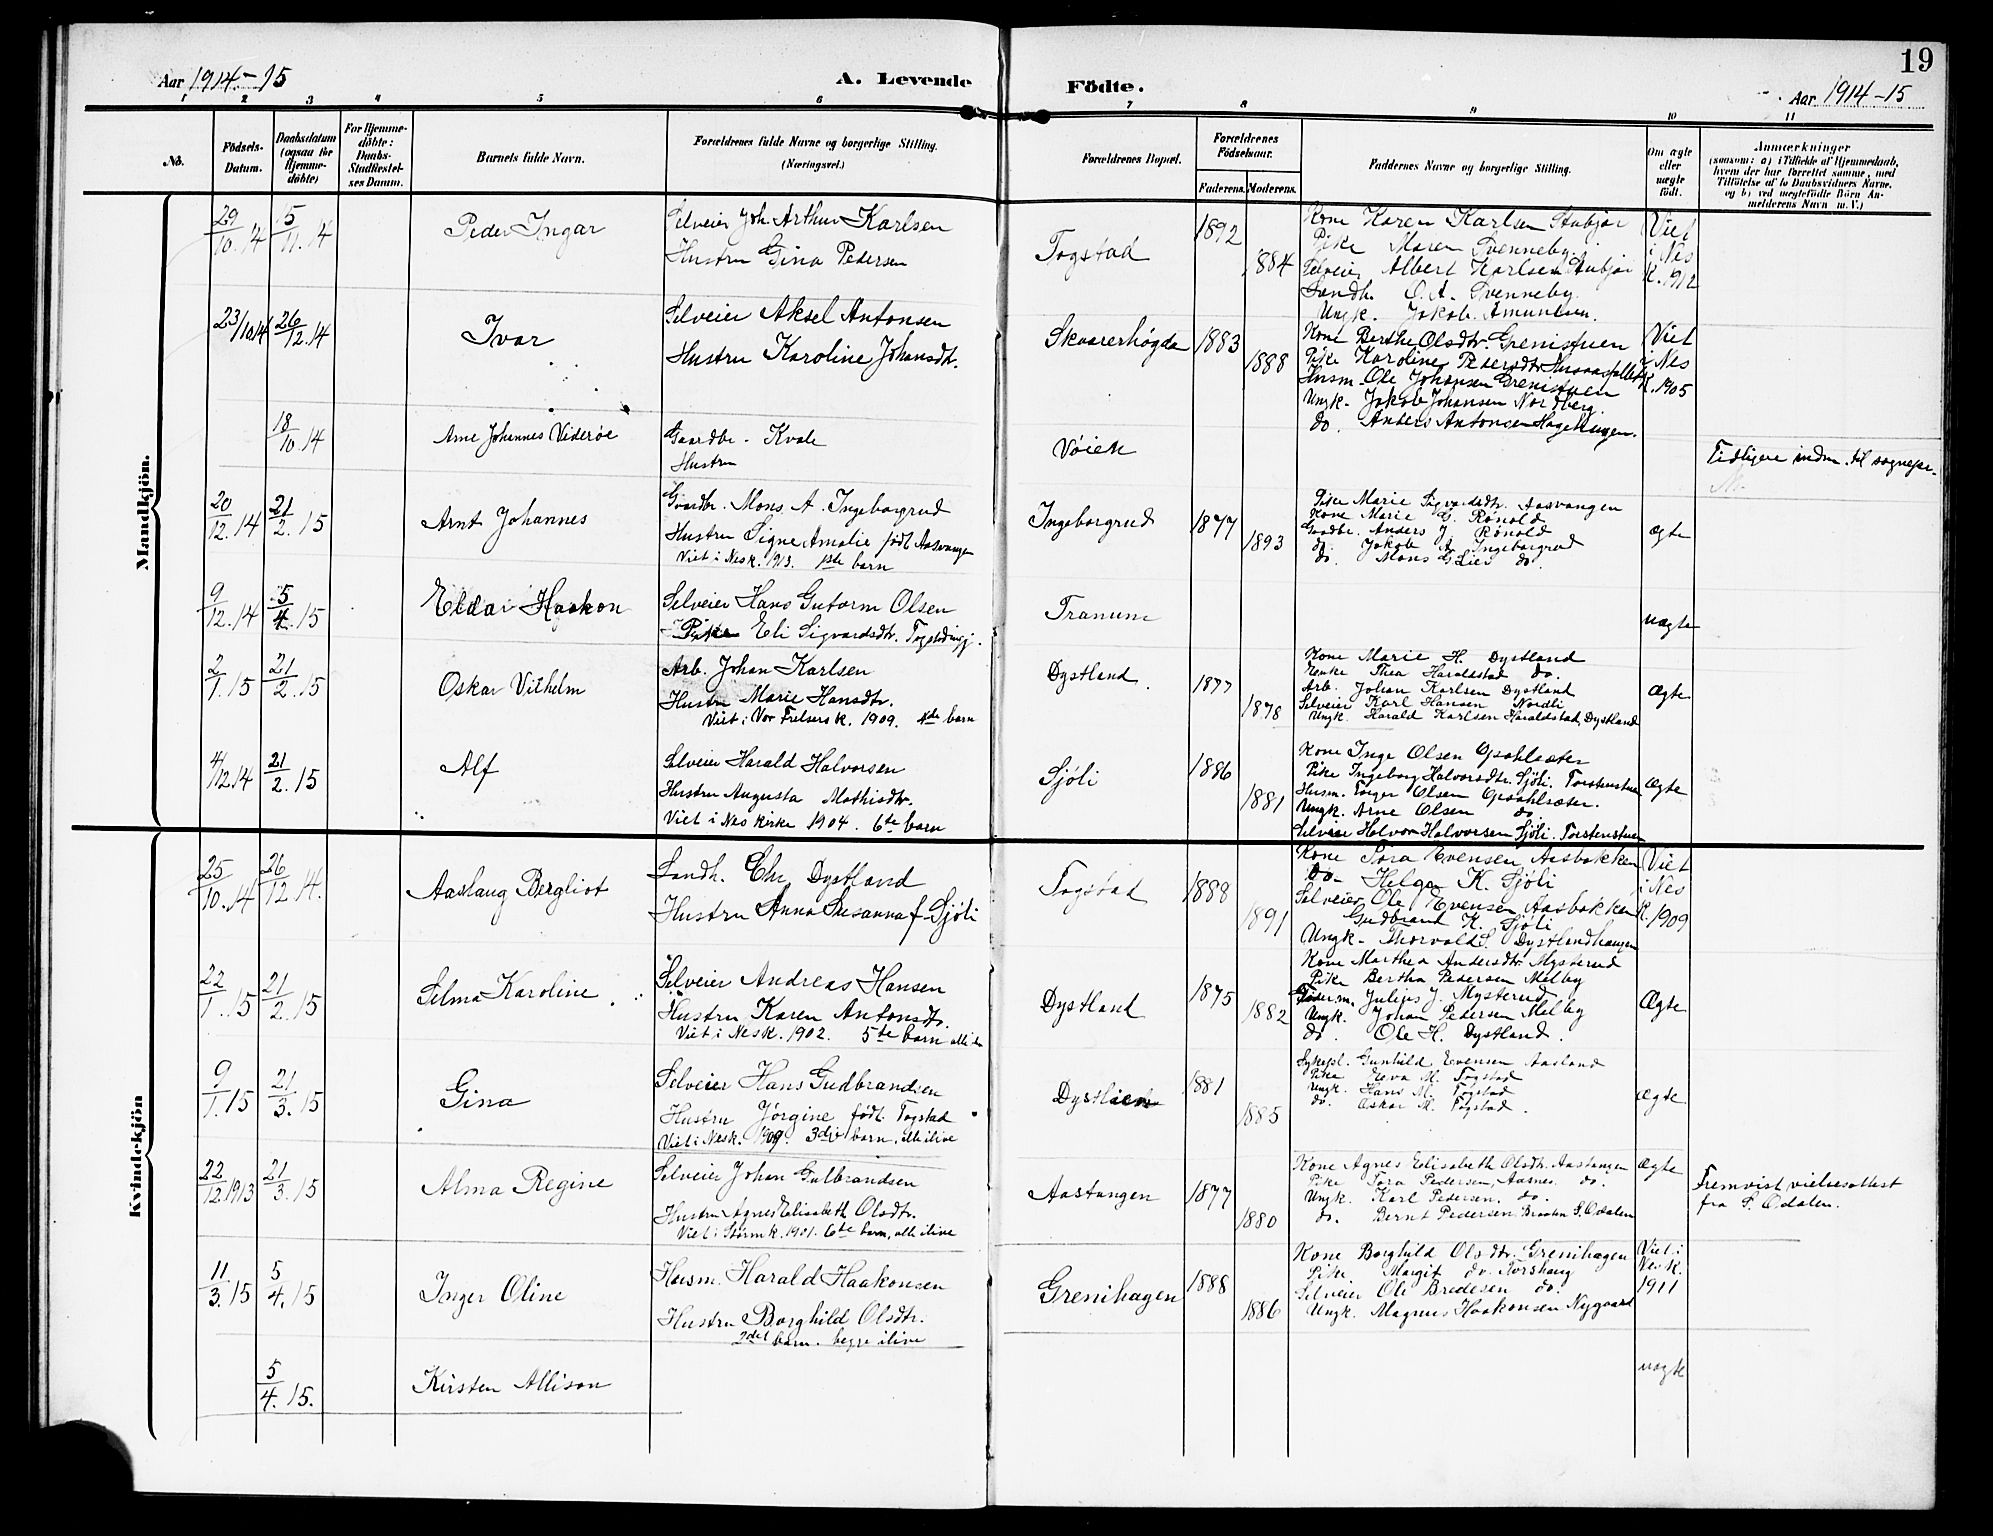 19
Aar 1914-15
A. Levende Födte.
Aar 1914-15
1 2 3 4 5 6 7 8 9 10 11
No.
Födsels-Datum.
Daabsdatum (ogsaa for Hjemme-döbte)
For Hjemme-döbte: Daabs-Stadfæstel-ses Datum.
Barnets fulde Navn.
Forældrenes fulde Navne og borgerlige Stilling. (Næringsvei.)
Forældrenes Bopæl.
Forældrenes Födselsaar.
Faderens. Moderens.
Faddernes Navne og borgerlige Stilling.
Om ægte eller uægte födt.
Anmærkninger
(saasom: a) i Tilfælde af Hjemmedaab, hvem der har forrettet samme, med Tilföielse af to Daabsvidners Navne, og b) ved uægtefödte Börn An-melderens Navn m. V.)
Mandkjön.
29/10.14 15/11.14 Peder Ingar
Selveier Joh. Arthur Karlsen
Hustru Gina Pedersen
Togstad 1892 1884
Kone Karen Karlsen Stubjør
Pike Maren Svenneby
Selveier Albert Karlsen Stubjør
Landh. O. A. Svenneby
Ungk. Jakob Amundsen.
Viet i Nes K. 1912
23/10.14 26/12.14 Ivar
Selveier Aksel Antonsen
Hustru Karoline Johansdt.
Skaarerhøgda 1883 1888
Kone Berthe Olsdtr. Grenistuen
Pike Karoline Pedersdtr.
Husm. Ole Johansen Grenistuen
Ungk. Jakob Johansen Nordberg.
do. Anders Antonsen Hagehaugen.
Viet i Nes K. 1905
18/10.14 Arne Johannes Viderøe
Gaardbr. Kvale
Hustru
Vøien
Tidligere indm. til sognepr.
20/12.14 21/2.15 Arnt Johannes
Gaardbr. Mons A. Ingeborgrud
Hustru Signe Amalie født Aasvangen
Viet i Nesk. 1913. 1ste barn
Ingeborgrud 1877 1893
Pike Marie Sigvardsdtr. Aasvangen
Kone Marie G. Rønold
Gaardbr. Anders J. Rønold
do. Jakob A. Ingeborgrud
do. Mons G. Lier do.
ægte
9/12.14 5/4.15 Eldar Haakon
Selveier Hans Gutorm Olsen
Pike Eli Sigvardsdtr.
Tranum
uægte
2/1.15 21/2.15 Oskar Vilhelm
Arb. Johan Karlsen
Hustru Marie Hansdtr.
Viet i Vor Frelsers K. 1909. 4de barn
Dystland 1877 1878
Kone Marie H. Dystland
Enke Thea Haraldstad do.
Arb. Johan Karlsen Dystland
Selveier Karl Hansen Nordli
Ungk. Harald Karlsen Haraldstad, Dystland
Ægte
4/12.14 21/2.15 Alf
Selveier Harald Halvorsen
Hustru Augusta Mathisdtr.
Viet i Nes Kirke 1904. 6te barn
Sjøli 1886 1881
Kone Inge Olsen Opsahlsæter
Pike Ingeborg Halvorsdtr. Sjøli. Torstenstuen
Husm. Torger Olsen Opsahlsæter.
Ungk. Arne Olsen do
Selveier Halvor Halvorsen Sjøli. Torstenstuen
Ægte
Kvindekjön
25/10.14 26/12.14. Aaslaug Bergliot
Landh. Chr. Dystland
Hustru Anna Susanna f. Sjøli
Togstad 1888 1891
Kone Tora Evensen Aasbakken
Do- Helga K. Sjöli
Selveier Ole Evensen Aasbakken
Gudbrand K. Sjöli
Ungk- Thorvald S. Dystlandhaugen
Viet i Nes K. 1909
22/1.15 21/2.15 Selma Karoline
Selveier Andreas Hansen
Hustru Karen Antonsdtr.
Viet i Nesk. 1902. 5te barn
Dystland 1875 1882
Kone Marthea Andersdtr. Mysterud
Pike Bertha Pedersen Melby
Julius J. Mysterud
Ungk. Johan Pedersen Melby
do. Ole H. Dystland.
Ægte
9/1.15 21/3.15 Gina
Selveier Hans Gudbrandsen
Hustru Jørgine født Togstad
Viet i Nesk. 1909. 3die barn, alle ilive
Dystlien 1881 1885
Sykepl. Gunhild Evensen Aasland
Pike Eeva M. Togstad
Ungk. Hans M. Togstad
do. Oskar M. Togstad.
ægte
22/12.1913 21/3.15 Alma Regine
Selveier Johan Gulbrandsen
Hustru Agnes Elisabeth Olsdtr.
Viet i Strømk. 1901. 6te barn, alle ilive
Aastangen 1877 1880
Kone Agnes Elisabeth Olsdtr. Aastangen
Pike Tora Pedersen, Aasnes do.
Ungk. Karl Pedersen. do.
do. Bernt Pedersen, Braaten S. Odalen
ægte
Fremvist vielsesattest
fra S. Odalen.
11/3.15 5/4.15 Inger Oline
Husm. Harald Haakonsen
Hustru Borghild Olsdtr.
2det barn. begge ilive
Grenihagen 1888 1886
Kone Borghild Olsdtr. Grenihagen
Pike Margit do. Norshaug
Selveier Ole Bredesen do.
Ungk. Magnus Haakonsen Nygaard
Viet i Nesk. 1911
5/4.15. Kirsten Allison
uægte